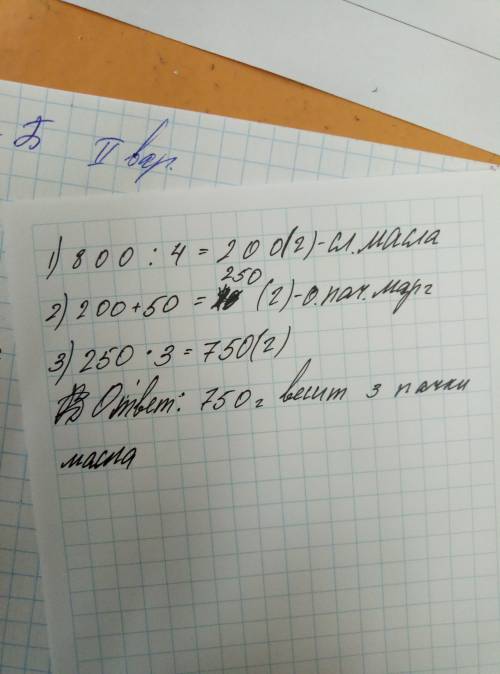 Б II вар.
1) 800 : 4 = 200(г)-сл.масла
250
2) 200+50 = (г)-о.пач.марг
3) 250 · 3 = 750(г)
Ответ: 750г весит 3 пачки
масла